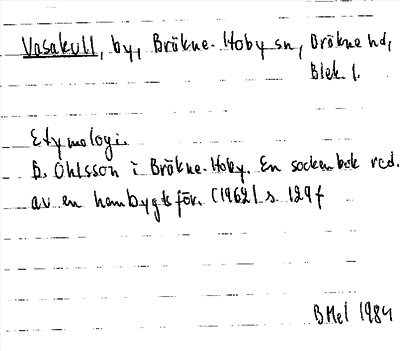 Vasakull, by, Bräkne-Hoby sn, Bräkne hd,
Blek. l.
Etymologi.
B. Ohlsson i Bräkne-Hoby. En sockenbok red.
av en hembygdsför. (1962) s. 129 f
BHel 1984